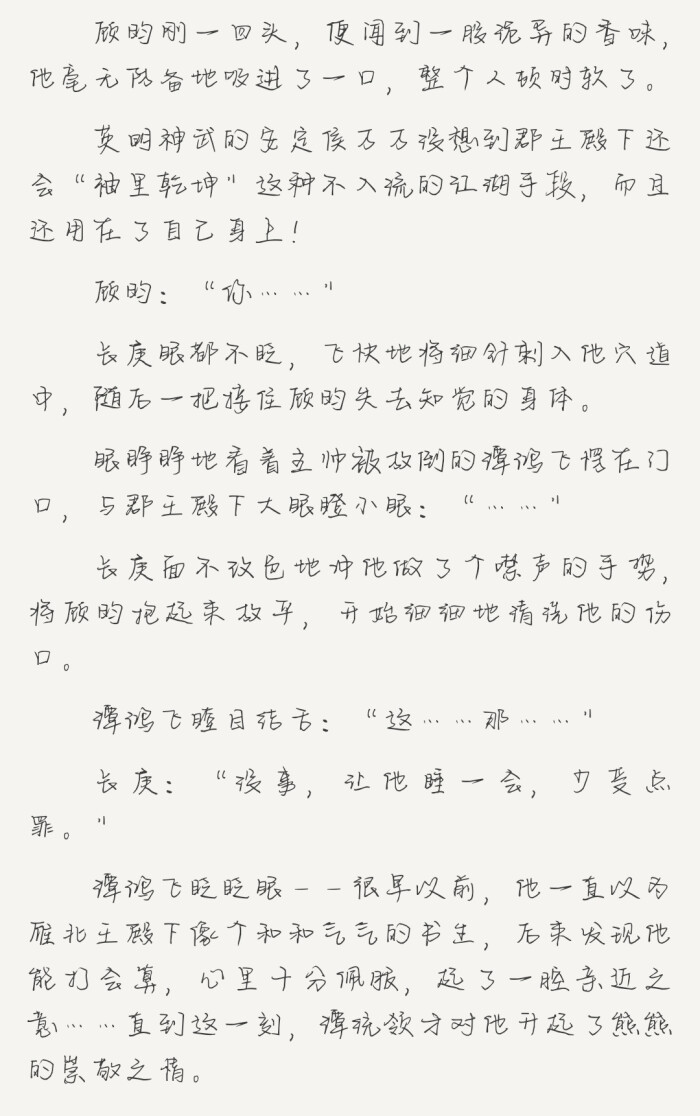 顾昀刚一回头，便闻到一股诡异的香味，
他毫无防备地吸进了一口，整个人顿时软了。
英明神武的安定侯万万没想到郡王殿下还
会“袖里乾坤”这种不入流的江湖手段，而且
还用在了自己身上！
顾昀：“你……”
长庚眼都不眨，飞快地将细针刺入他穴道
中，随后一把接住顾昀失去知觉的身体。
眼睁睁地看着主帅被放倒的谭鸿飞愣在门
口，与郡王殿下大眼瞪小眼：“……”
长庚面不改色地冲他做了个噤声的手势，
将顾昀抱起来放平，开始细细地清洗他的伤
口。
谭鸿飞瞠目结舌：“这……那……”
长庚：“没事，让他睡一会，少受点
罪。”
谭鸿飞眨眨眼——很早以前，他一直以为
雁北王殿下像个和和气气的书生，后来发现他
能打会算，心里十分佩服，起了一腔亲近之
意……直到这一刻，谭统领才对他升起了熊熊
的崇敬之情。